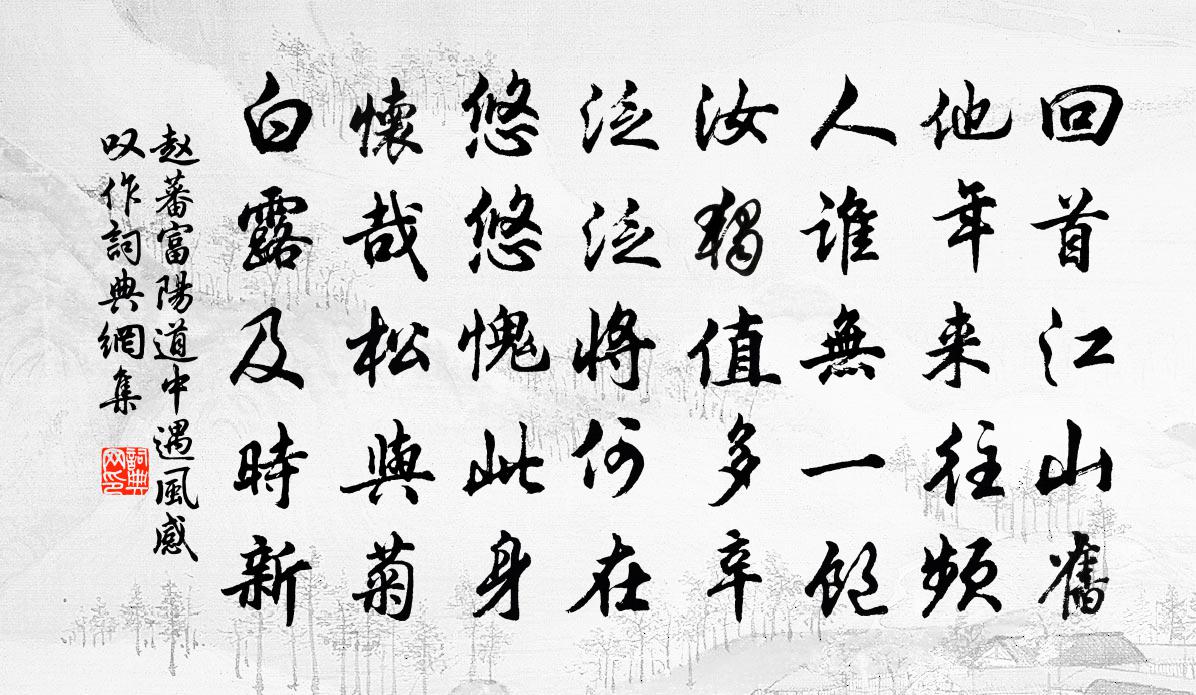 回首江山舊
他年来往頻
人誰無一飽
汝獨值多辛
泛泛將何在
悠悠愧此身
懷哉松與菊
白露及時新
赵蕃富陽道中遇風感
叹作詞典網集
詞典網印